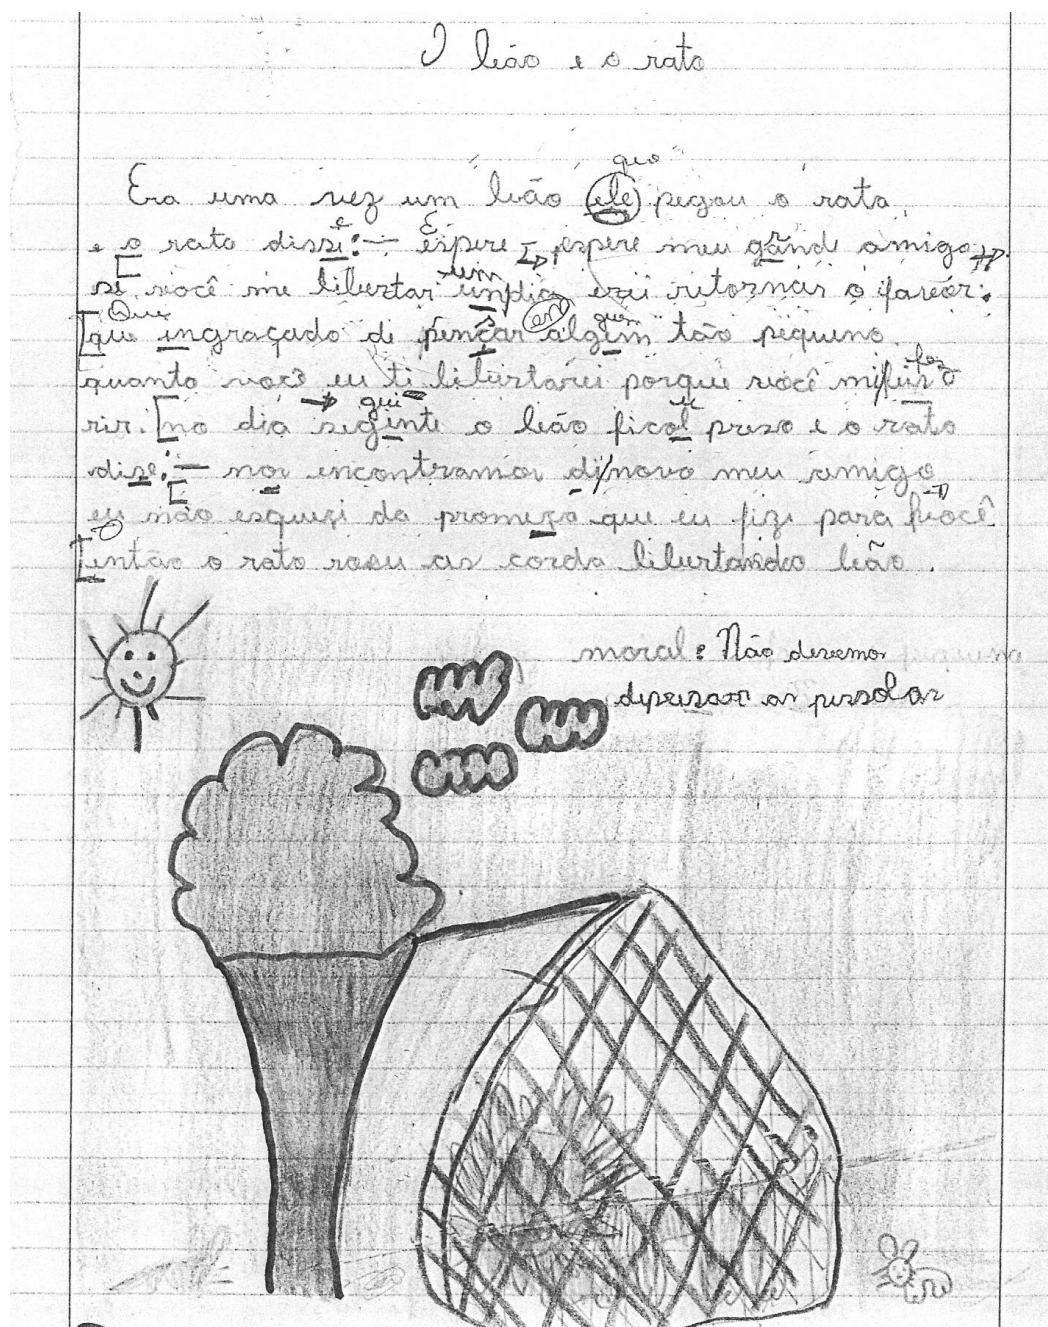 O leão e o rato
que
Era uma vez um leão ele pegou o rato
e o rato dissi: — Espere, espere meu gande amigo
um
se você me libertar undia irei retornar o favor.
Que em guem
que ingraçado di pençar algim tão pequeno
fez
quanto você eu ti libertarei porque você mi feis
gui u
rir. no dia seginte o leão ficol preso e o rato
dise: — nos encontramos di novo meu amigo
eu não esqueci da promeça que eu fizi para você
então o rato roeu as corda libertando leão.
moral: Não devemos
desprezar as pessoas